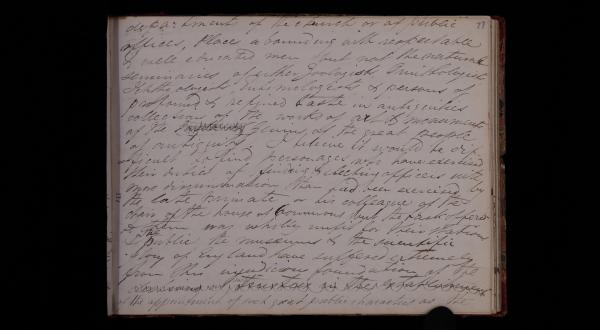 77
department of the church or of public
offices, Place abounding with respectable
& well educated men but not the natural
seminaries of either Zoologists Ornithologist
Ichthyologists Entomologists & persons of
profound & refined taste in antiquities
collections of the works of art & monuments
of the genius of the great people
of antiquity. I believe it would be dif
ficult to find personages who have exercised
their duties of finding & electing officers with
more discrimination than had been exercised by
the late Primate or his colleague of the
chair of the house of Commons but the
was wholly unfit for their station
The public the museums & the scientific
glory of England have suffered extremely
from this injudicious foundation of the
of the appointment of such great public characters as the